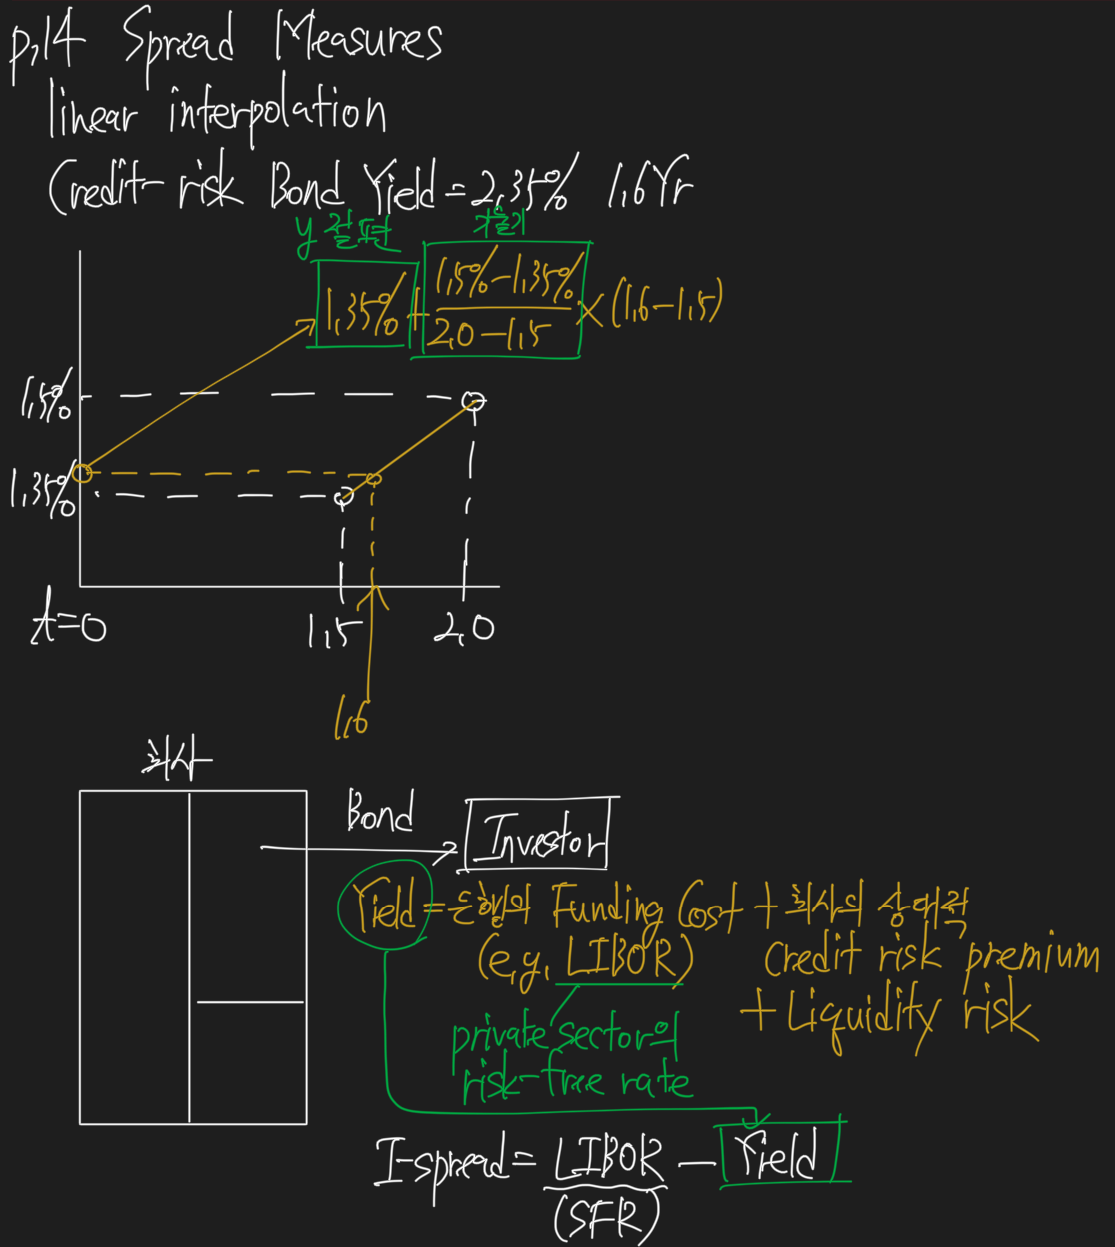 p.14 Spread Measures
linear interpolation
Credit-risk Bond Yield = 2.35% 1.6Yr
y 절편 기울기
1.35% + (1.5% - 1.35%) / (2.0 - 1.5) × (1.6 - 1.5)
1.5%
1.35%
t=0 1.5 2.0
1.6
회사
Bond
Investor
Yield = 은행의 Funding Cost + 회사의 상대적
(e.g. LIBOR) credit risk premium
+ Liquidity risk
private sector의
risk-free rate
I-spread = LIBOR - Yield
(SFR)